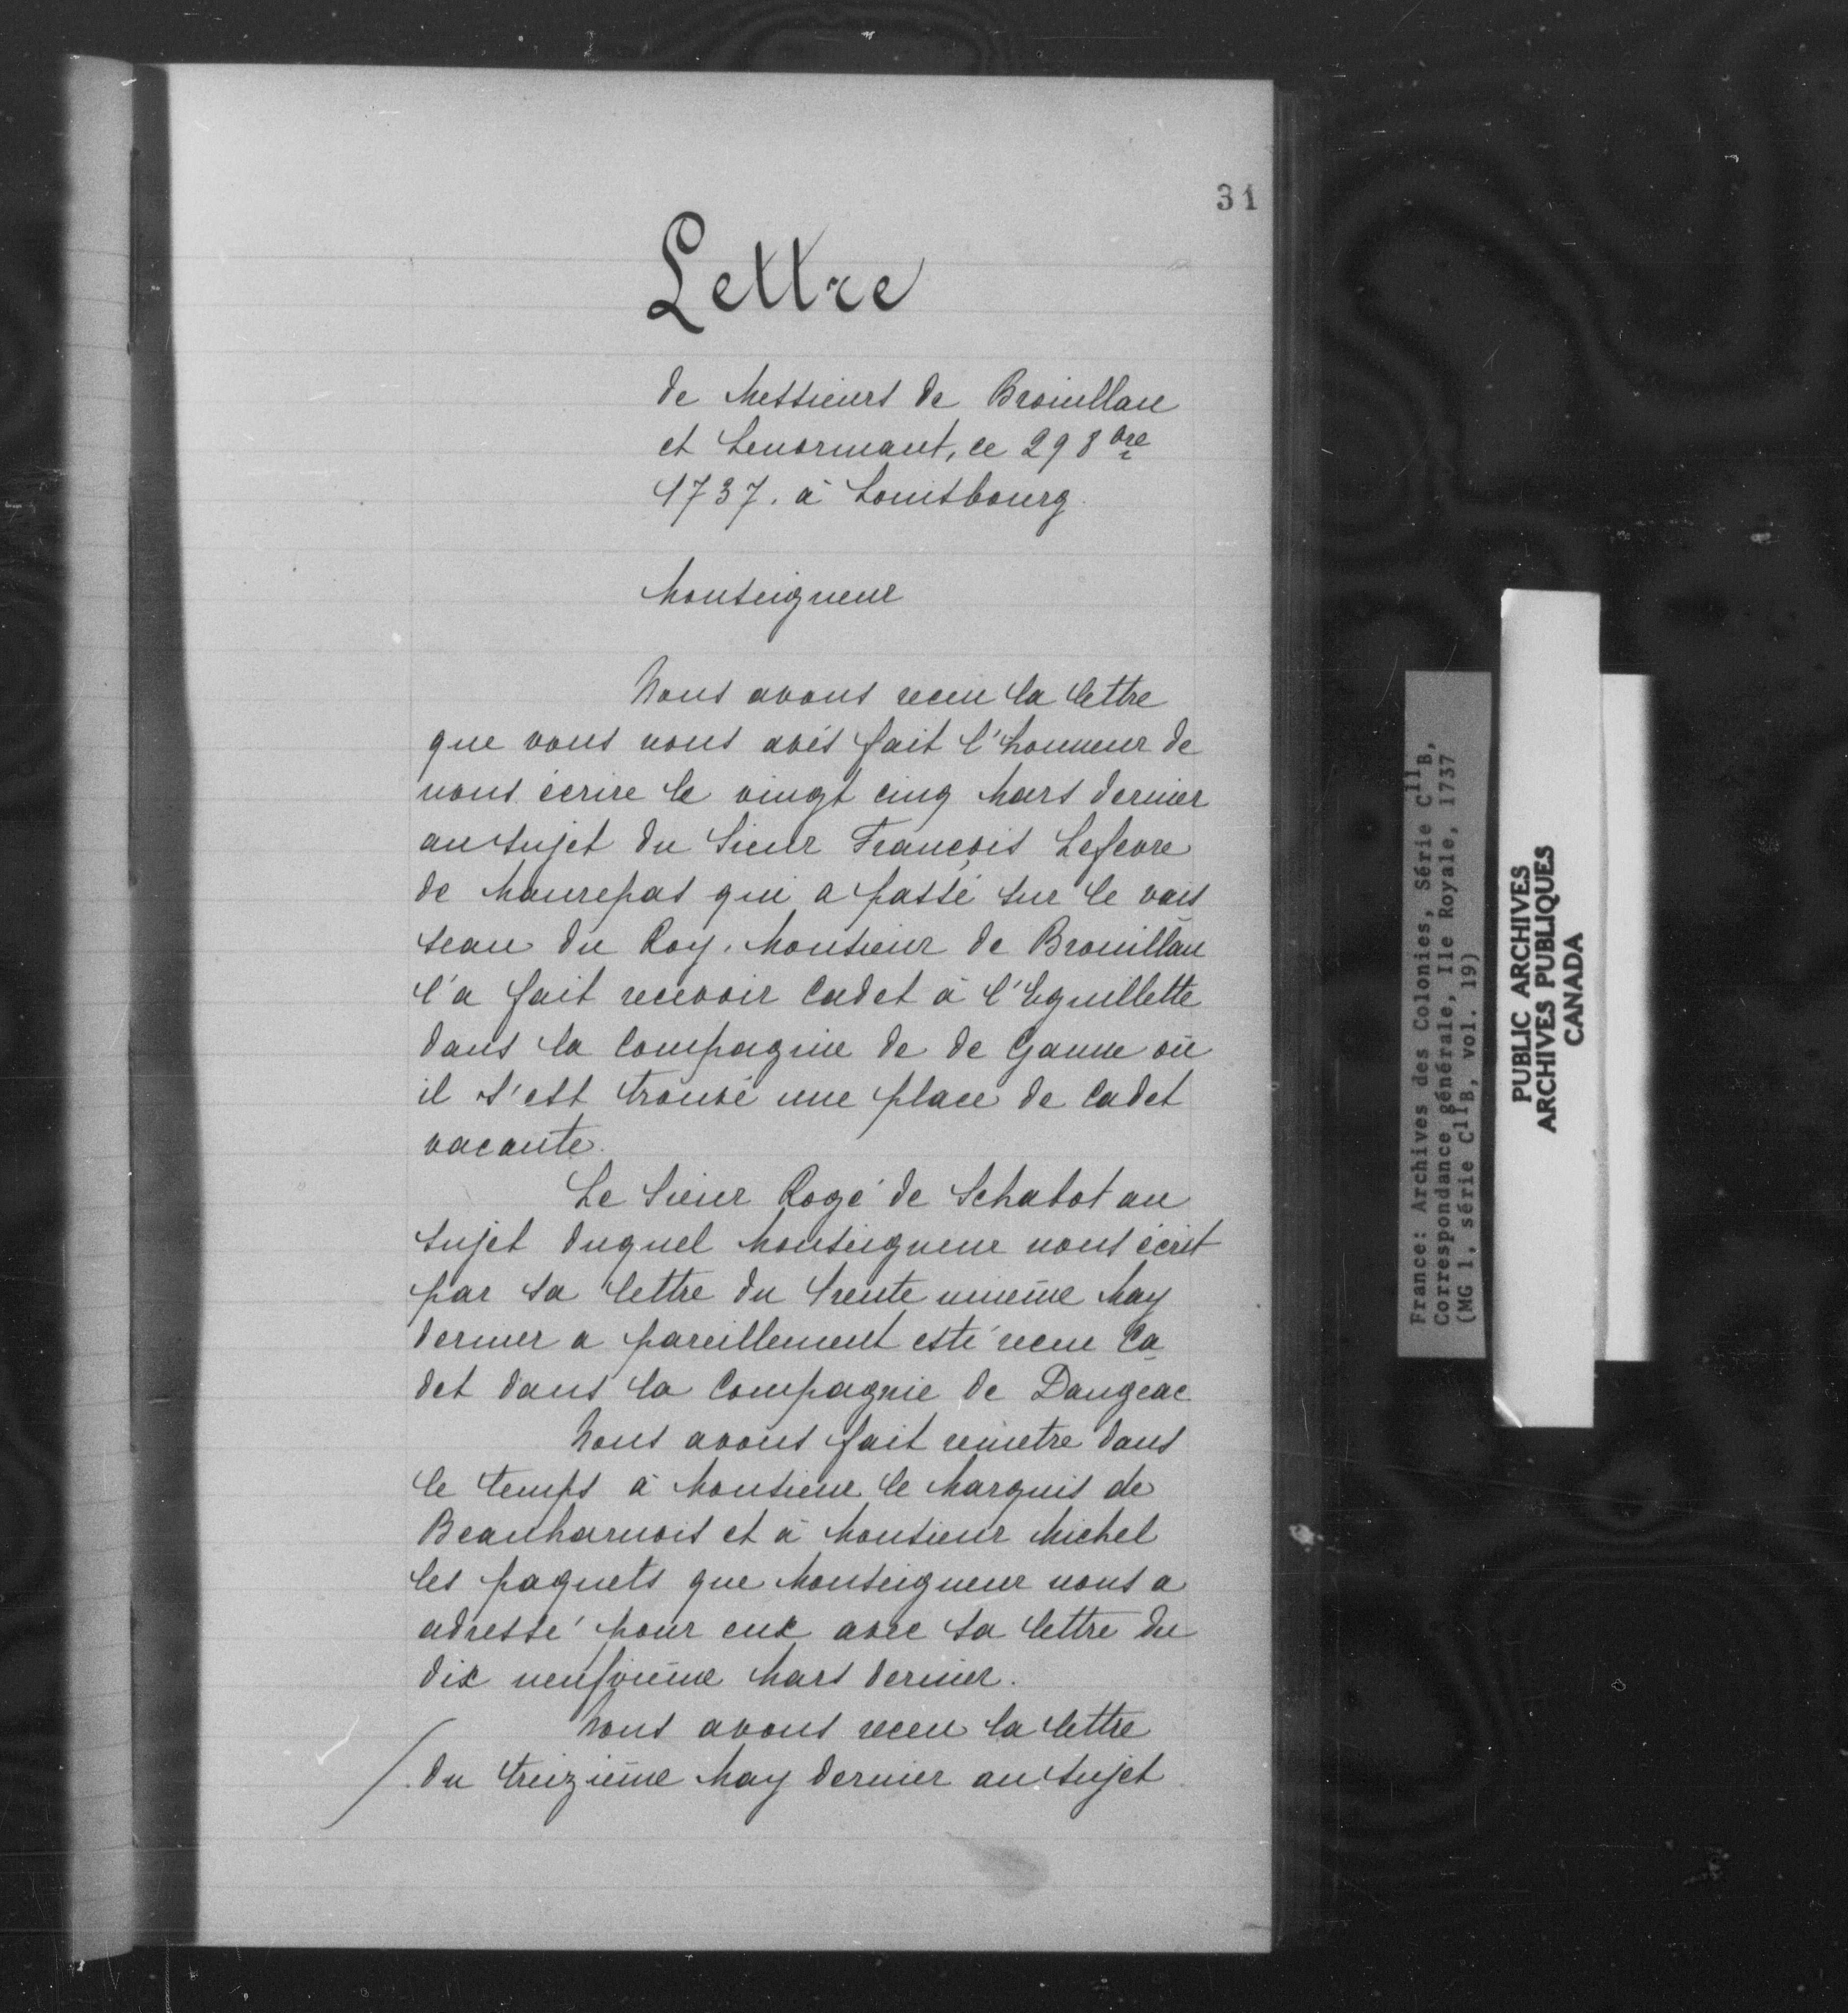 31
Lettre
de Messieurs de Brouillan
et Lenormant, ce 29 8bre
1737. à Louisbourg.
Monseigneur
Nous avons receu la lettre
que vous nous avés fait l'honneur de
nous écrire le vingt cinq Mars dernier
au sujet du Sieur François Lefevre
de Maurepas qui a passé sur le vais
seau du Roy. Monsieur de Brouillan
l'a fait recevoir Cadet à l'Eguillette
dans la Compagnie de de Ganne où
il s'est trouvé une place de Cadet
vacante.
Le Sieur Rogé de Schabot au
sujet duquel Monseigneur nous écrit
par sa lettre du trente unième May
dernier a pareillement esté receu Ca
det dans la Compagnie de Dangeac
Nous avons fait remetre dans
le temps à Monsieur le Marquis de
Beauharnois et à Monsieur Michel
les paquets que Monseigneur nous a
adressé pour eux avec sa lettre du
dix neufvième Mars dernier.
Nous avons receu la lettre
du treizième May dernier au sujet
France: Archives des Colonies, Série C11B,
Correspondance générale, Ile Royale, 1737
(MG 1, série C11B, vol. 19)
PUBLIC ARCHIVES
ARCHIVES PUBLIQUES
CANADA